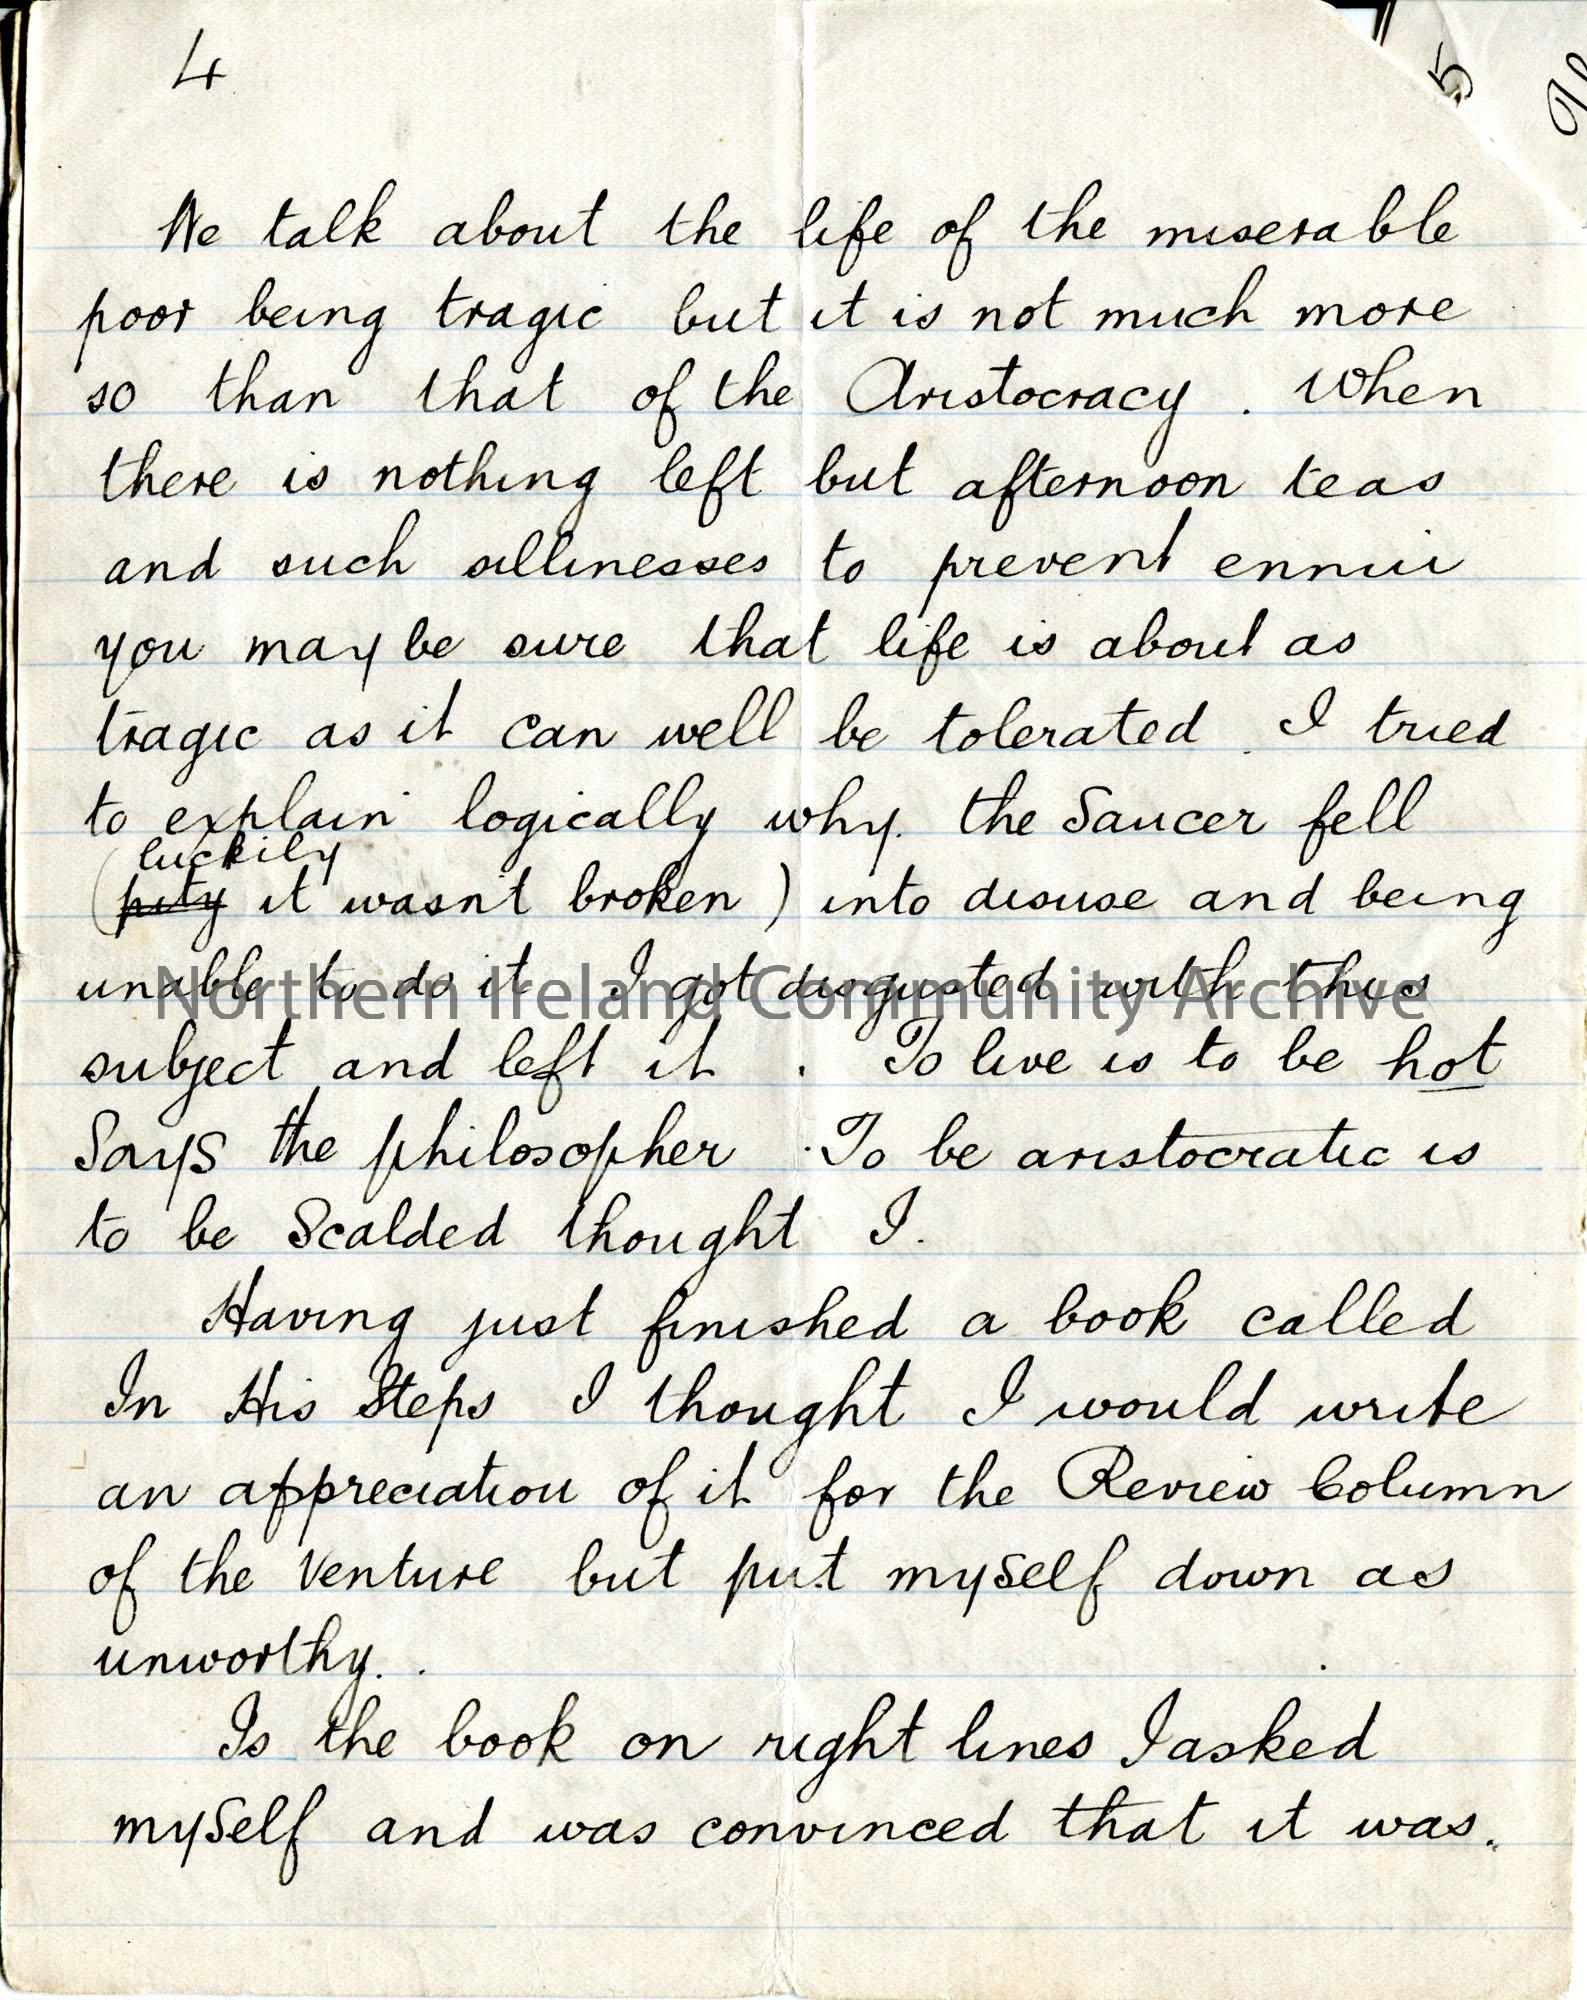 4
5
We talk about the life of the miserable
poor being tragic but it is not much more
so than that of the Aristocracy. When
there is nothing left but afternoon teas
and such sillinesses to prevent ennui
you may be sure that life is about as
tragic as it can well be tolerated. I tried
to explain logically why the Saucer fell
luckily
(pity it wasn't broken) into disuse and being
unable to do it I got disgusted with this
subject and left it. To live is to be hot
Says the philosopher. To be aristocratic is
to be Scalded thought I.
Having just finished a book called
In His Steps I thought I would write
an appreciation of it for the Review Column
of the Venture but put myself down as
unworthy.
Is the book on right lines I asked
myself and was convinced that it was.
Northern Ireland Community Archive